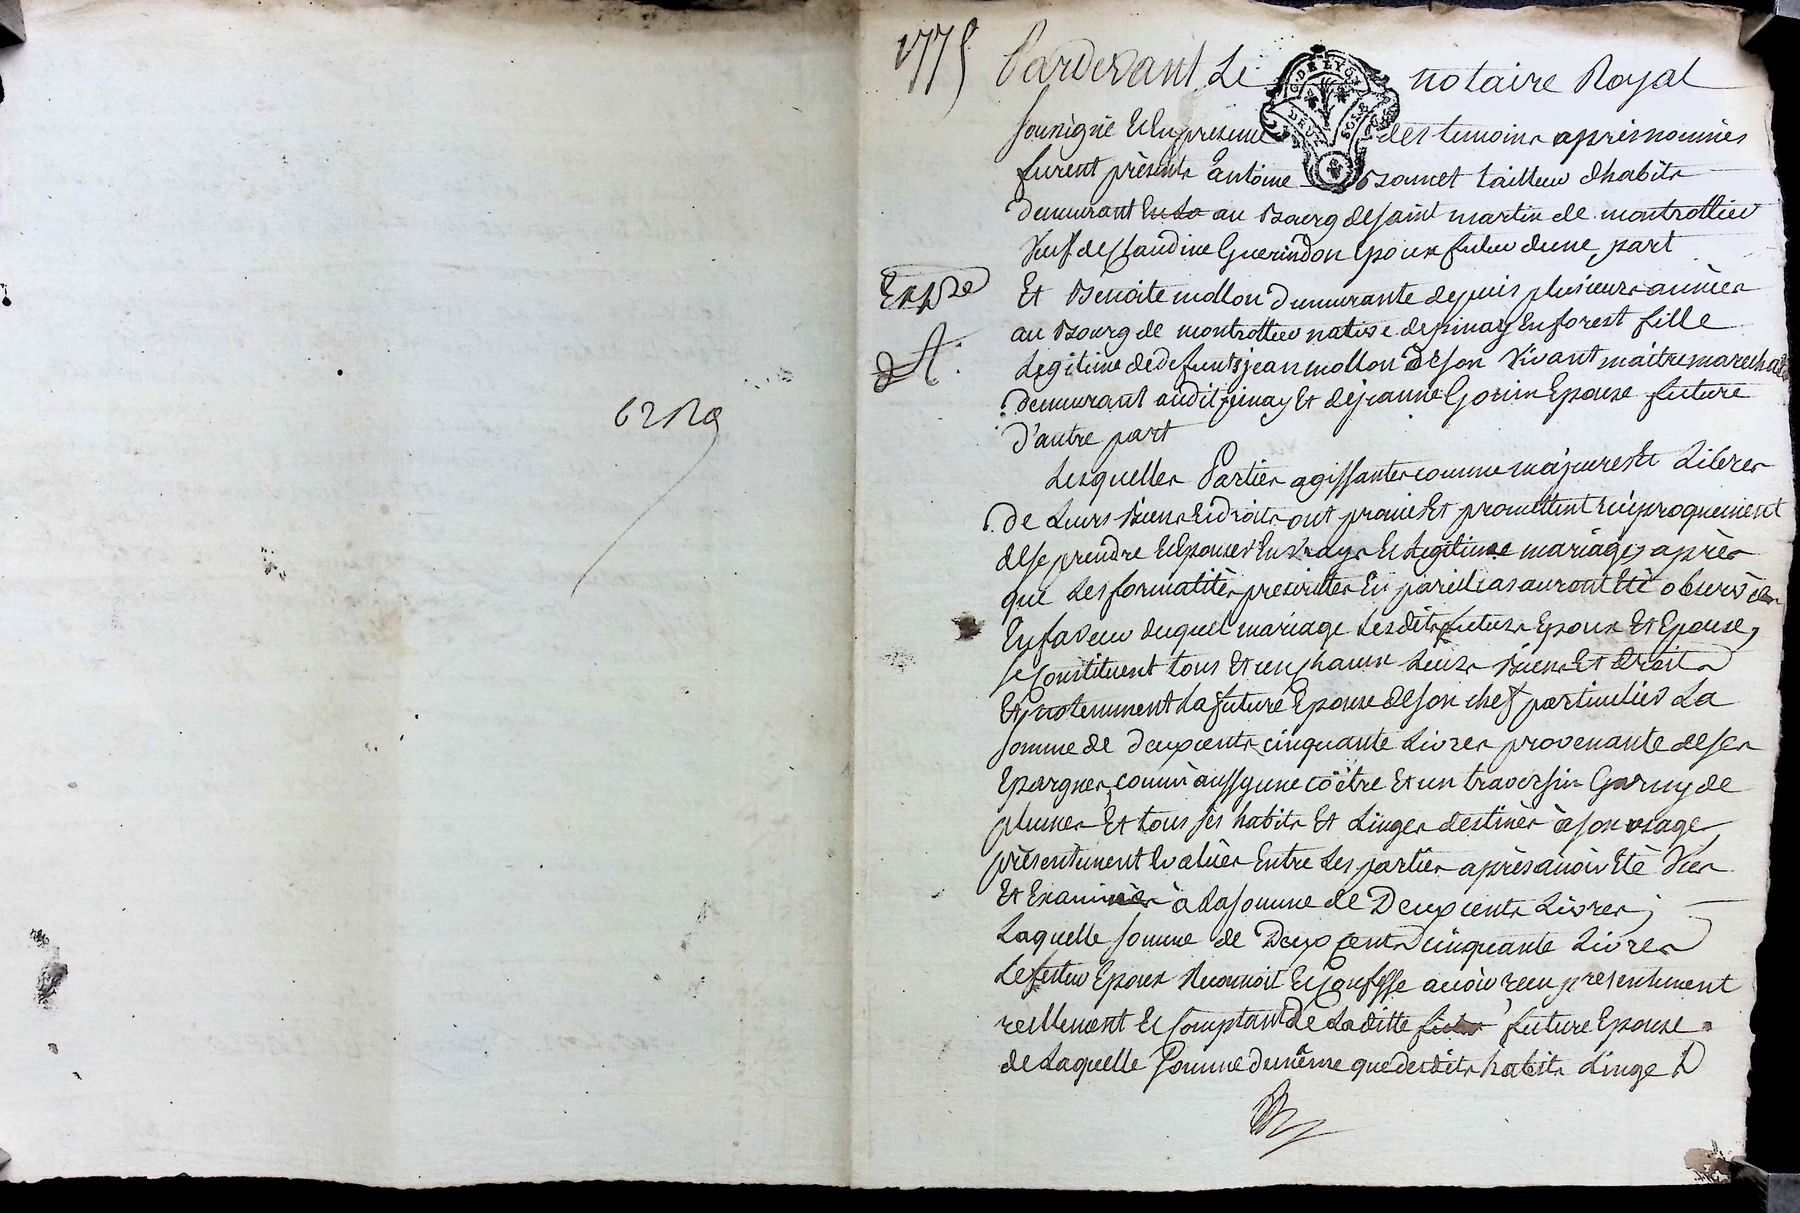 1775
Pardevant Le notaire Royal
G. DE LYON
DEUX SOLS
soussigné Et En presence des temoins après nommés
furent présents Antoine Bonnet tailleur d'habits
Demeurant En La au Bourg de saint martin de montrottier
Veuf de Claudine Guerindon Epoux futur d'une part
Exp.
Et Benoite mollon Demeurante depuis plusieurs années
au Bourg de montrottier native de pinay En forest fille
Legitime de defunts jean mollon de son vivant maitre marechal
demeurant audit pinay Et de jeanne Gorin Epouse future
d'autre part
Lesquelles Parties agissantes comme majeures Et Libres
de Leurs Biens Et droits ont promis Et promettent réciproquement
de se prendre Et Epouser En Vray Et Legitime mariage, après
que Les formalités prescrittes En pareil cas auront Eté observées
En faveur duquel mariage Lesdits futurs Epoux Et Epouse,
se Constituent tous Et un chacun Leurs Biens Et droits
Et notemment La future Epouse de son chef particulier La
somme de deux cents cinquante Livres provenante de ses
Epargnes, comm'aussy une coëtre Et un traversin Garny de
plumes Et tous ses habits Et Linges destinés à son usage
présentement Evalués Entre Les parties après avoir Eté Vus
Et Examinés à La somme de Deux cents Livres;
Laquelle somme de Deux Cents cinquante Livres
Le futur Epoux Reconnoit Et Confesse avoir reçu presentement
reellement Et Comptant de Laditte future Epouse
de Laquelle Somme de même que desdits habits Linge